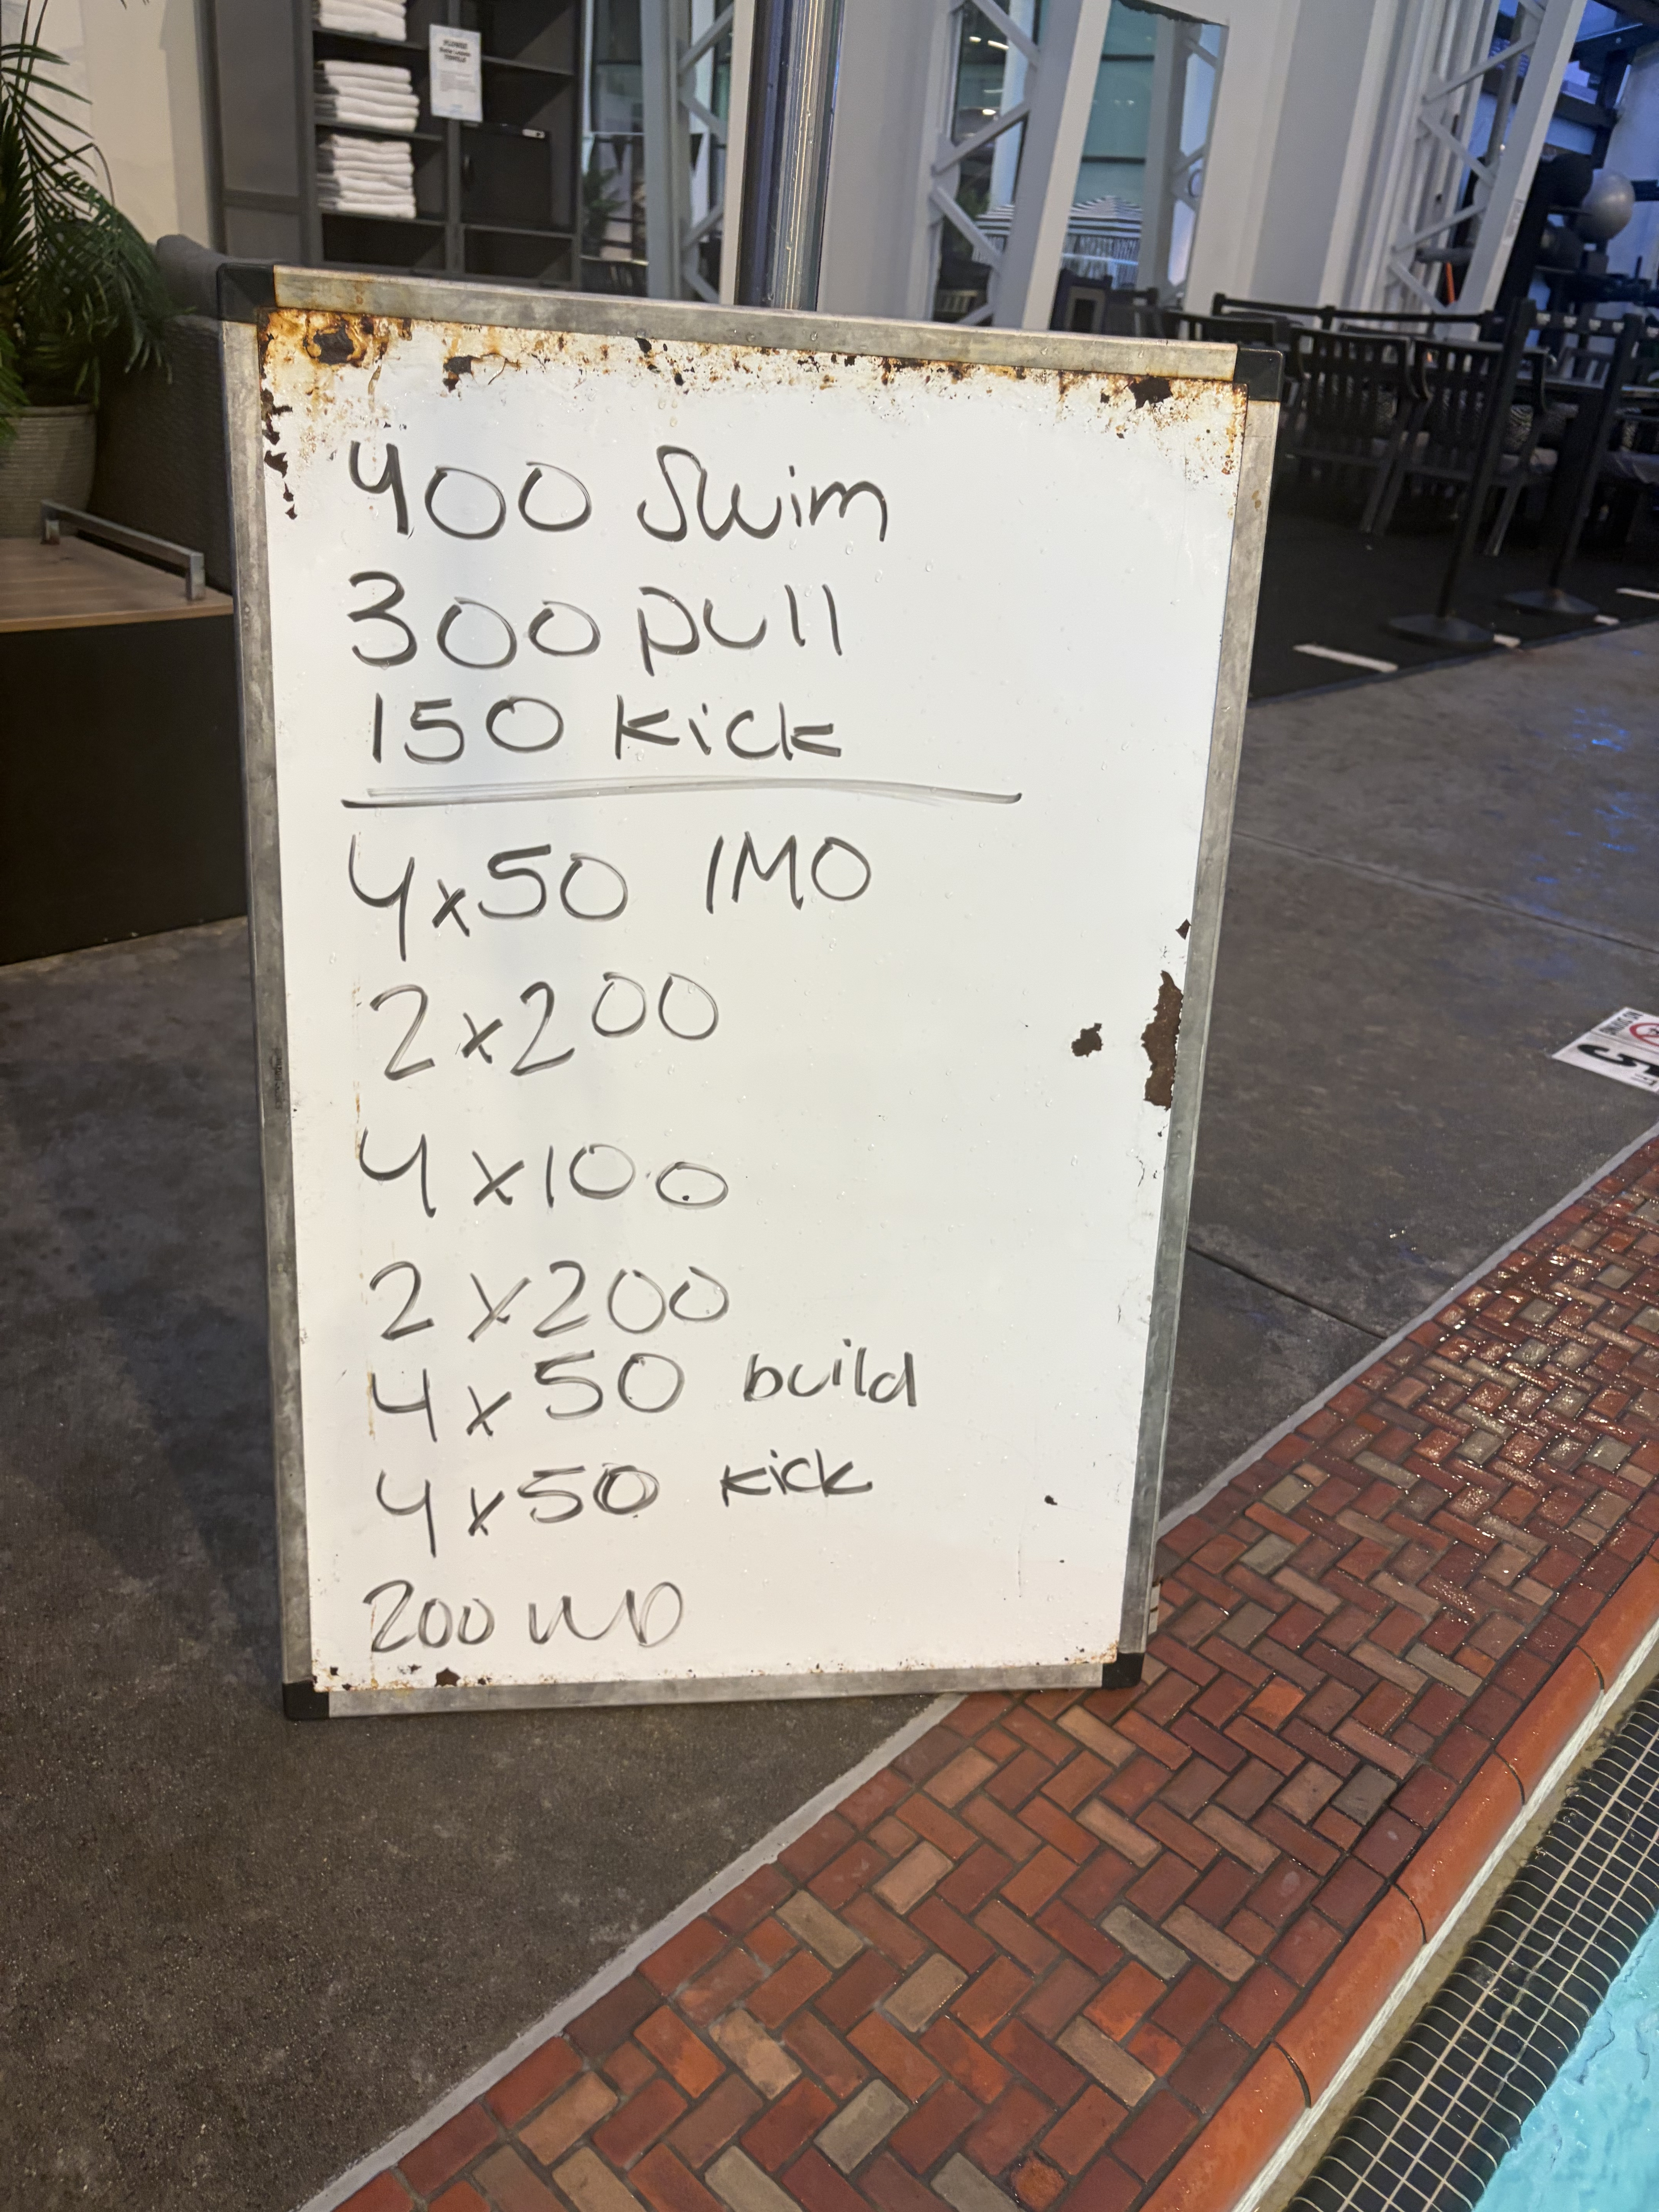 PLUNGE
400 Swim
300 pull
150 kick
4x50 IMO
2x200
4x100
2x200
4x50 build
4x50 kick
200 WD